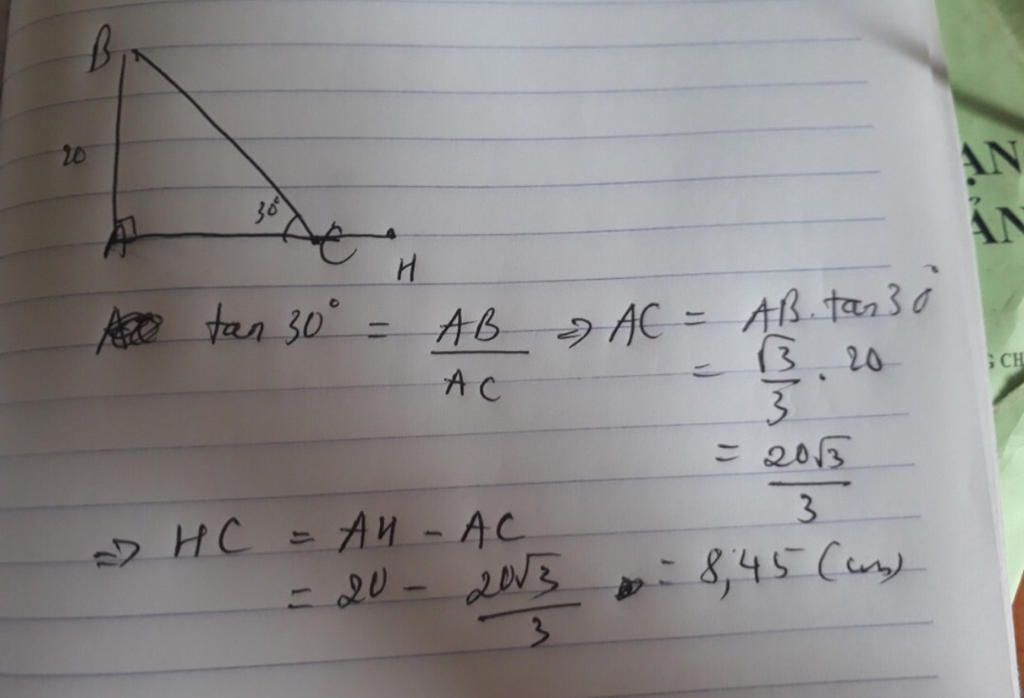 B
20
30°
A
C
H
tan 30° = AB/AC ⇒ AC = AB. tan 30°
= √3/3 . 20
= 20√3/3
⇒ HC = AH - AC
= 20 - 20√3/3 = 8,45 (cm)
ẠN
ÁN
G CH